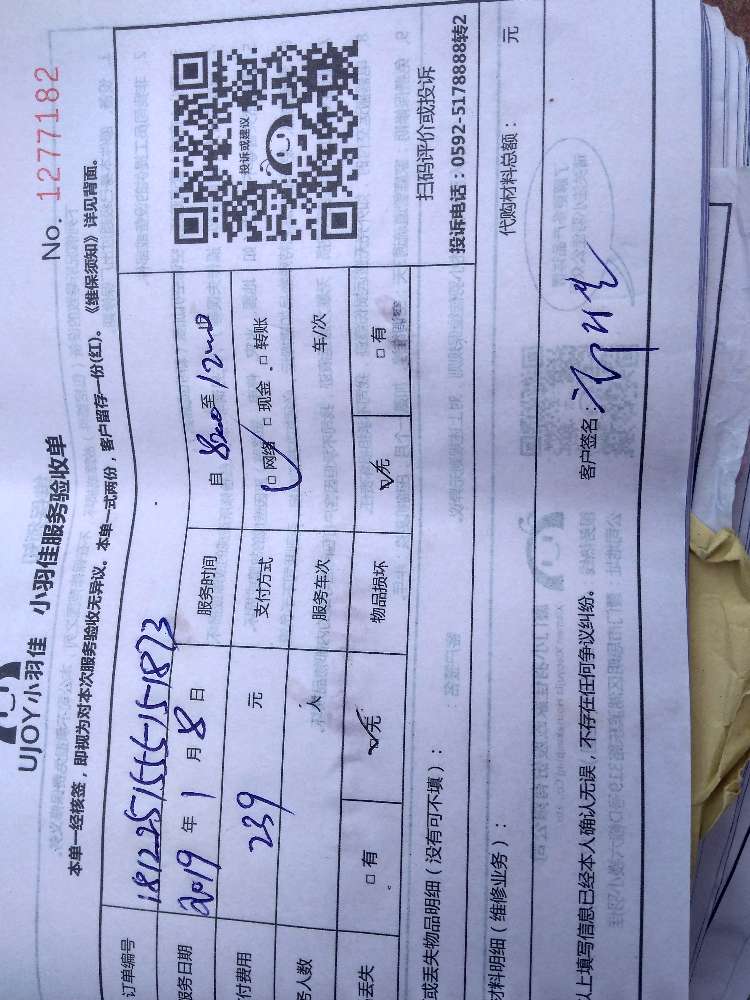 No. 1277182
UJOY小羽佳 小羽佳服务验收单
本单一经核签，即视为对本次服务验收无异议。本单一式两份，客户留存一份(红)。《维保须知》详见背面。
订单编号
务日期 2019 年 1 月 8 日 服务时间 自 8:00 至 12:00
付费用 239 元 支付方式 □网络 □现金 □转账
务人数 人 服务车次 车/次
丢失 □有 ☑无 物品损坏 ☑无 □有
投诉或建议
扫码评价或投诉
投诉电话：0592-5178888转2
或丢失物品明细（没有可不填）：
材料明细（维修业务）： 代购材料总额： 元
以上填写信息已经本人确认无误，不存在任何争议纠纷。 客户签名：